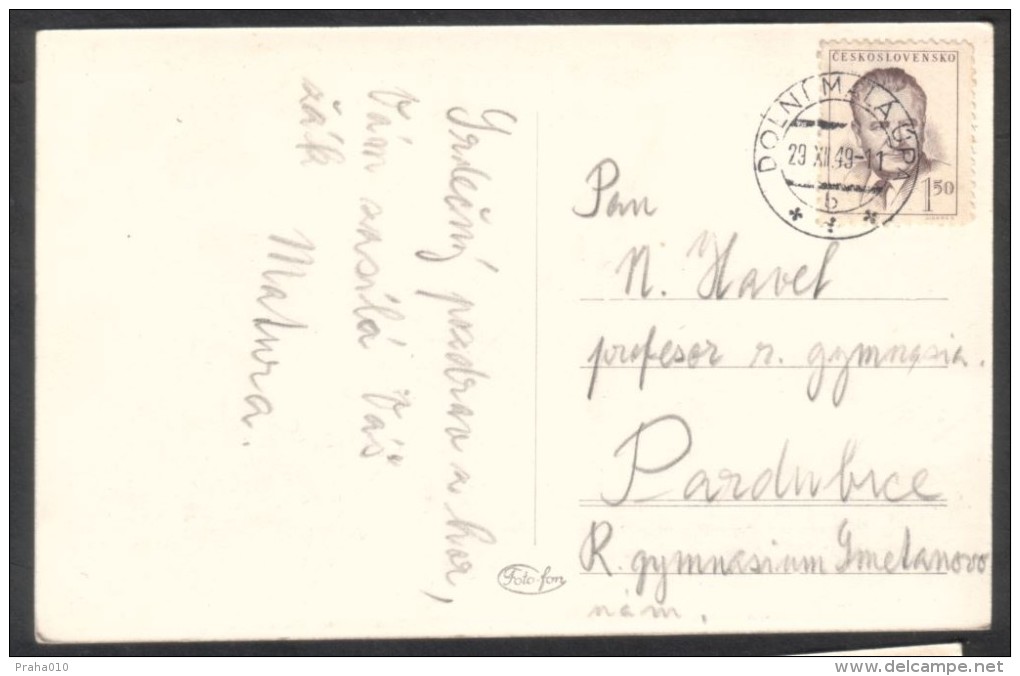 Srdečný pozdrav z hor,
Vám zasílá Váš
žák
Matura.
ČESKOSLOVENSKO
DOLNÍ MALÁ ÚPA
29 XII.49-11
b
1 50
Pan
N. Havel
profesor r. gymnasia.
Pardubice
R. gymnasium Smetanovo
nám.
Foto-fon
Praha010
www.delcampe.net